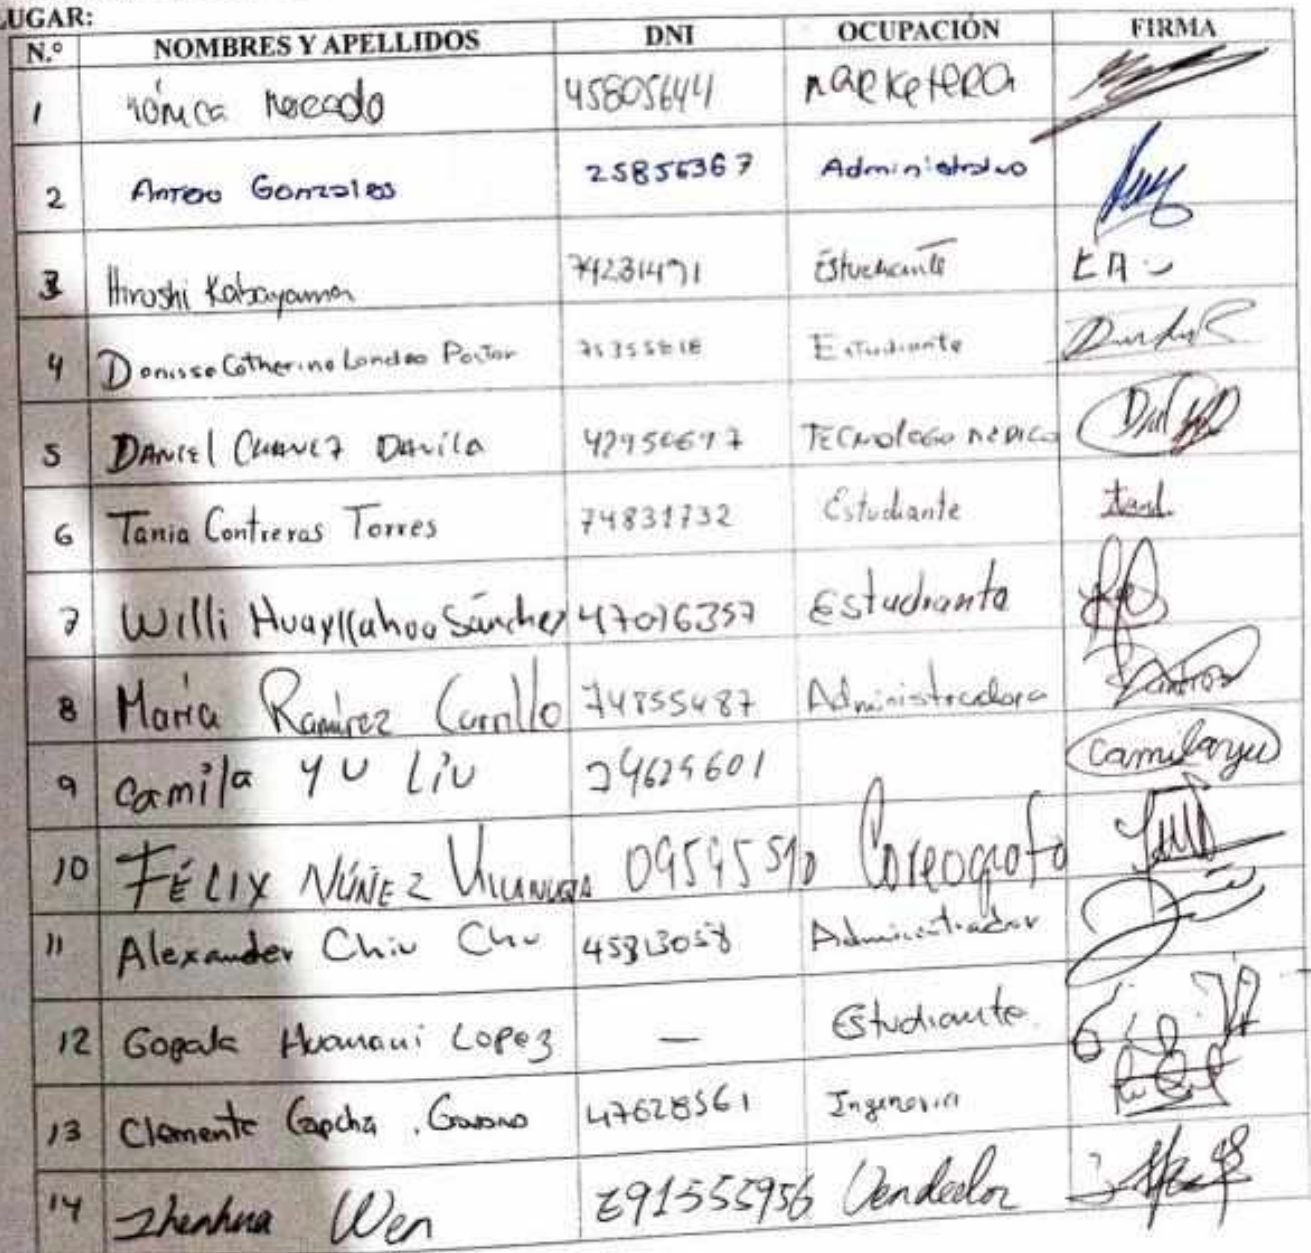 LUGAR:
N.º NOMBRES Y APELLIDOS DNI OCUPACIÓN FIRMA
1 Mónica Mercado 45805644 Marketera
2 Gonzales 25855367 Administrativo
3 Hiroshi Kabayama 74231471 Estudiante
4 Denisse Catherine Landeo Pastor 75355818 Estudiante
5 DANIEL CHAVEZ DAVILA 42956697 TECNOLOGO MEDICO
6 Tania Contreras Torres 74831732 Estudiante
7 Willi Huayllahua Sánchez 47076357 Estudiante
8 María Ramírez Carrillo 74855487 Administradora
9 Camila YU LiU 74625601 Camilayu
10 FÉLIX NÚÑEZ VILLANUEVA 09595510 Coreografo
11 Alexander Chiu Chu 45813058 Administrador
12 Gopala Huamani Lopez — Estudiante
13 Clemente Capcha 47628561 Ingeneria
14 Zhenhua Wen 291555956 Vendedor